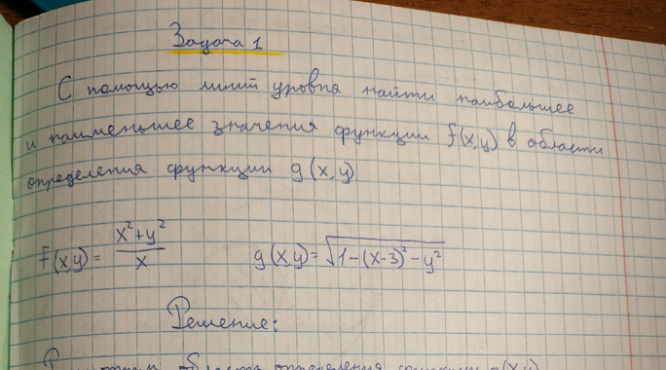 Задача 1
С помощью линий уровня найти наибольшее
и наименьшее значения функции f(x,y) в области
определения функции g(x,y)
f(x,y) = \frac{x^2+y^2}{x} g(x,y) = \sqrt{1-(x-3)^2-y^2}
Решение:
область определения функции g(x,y)